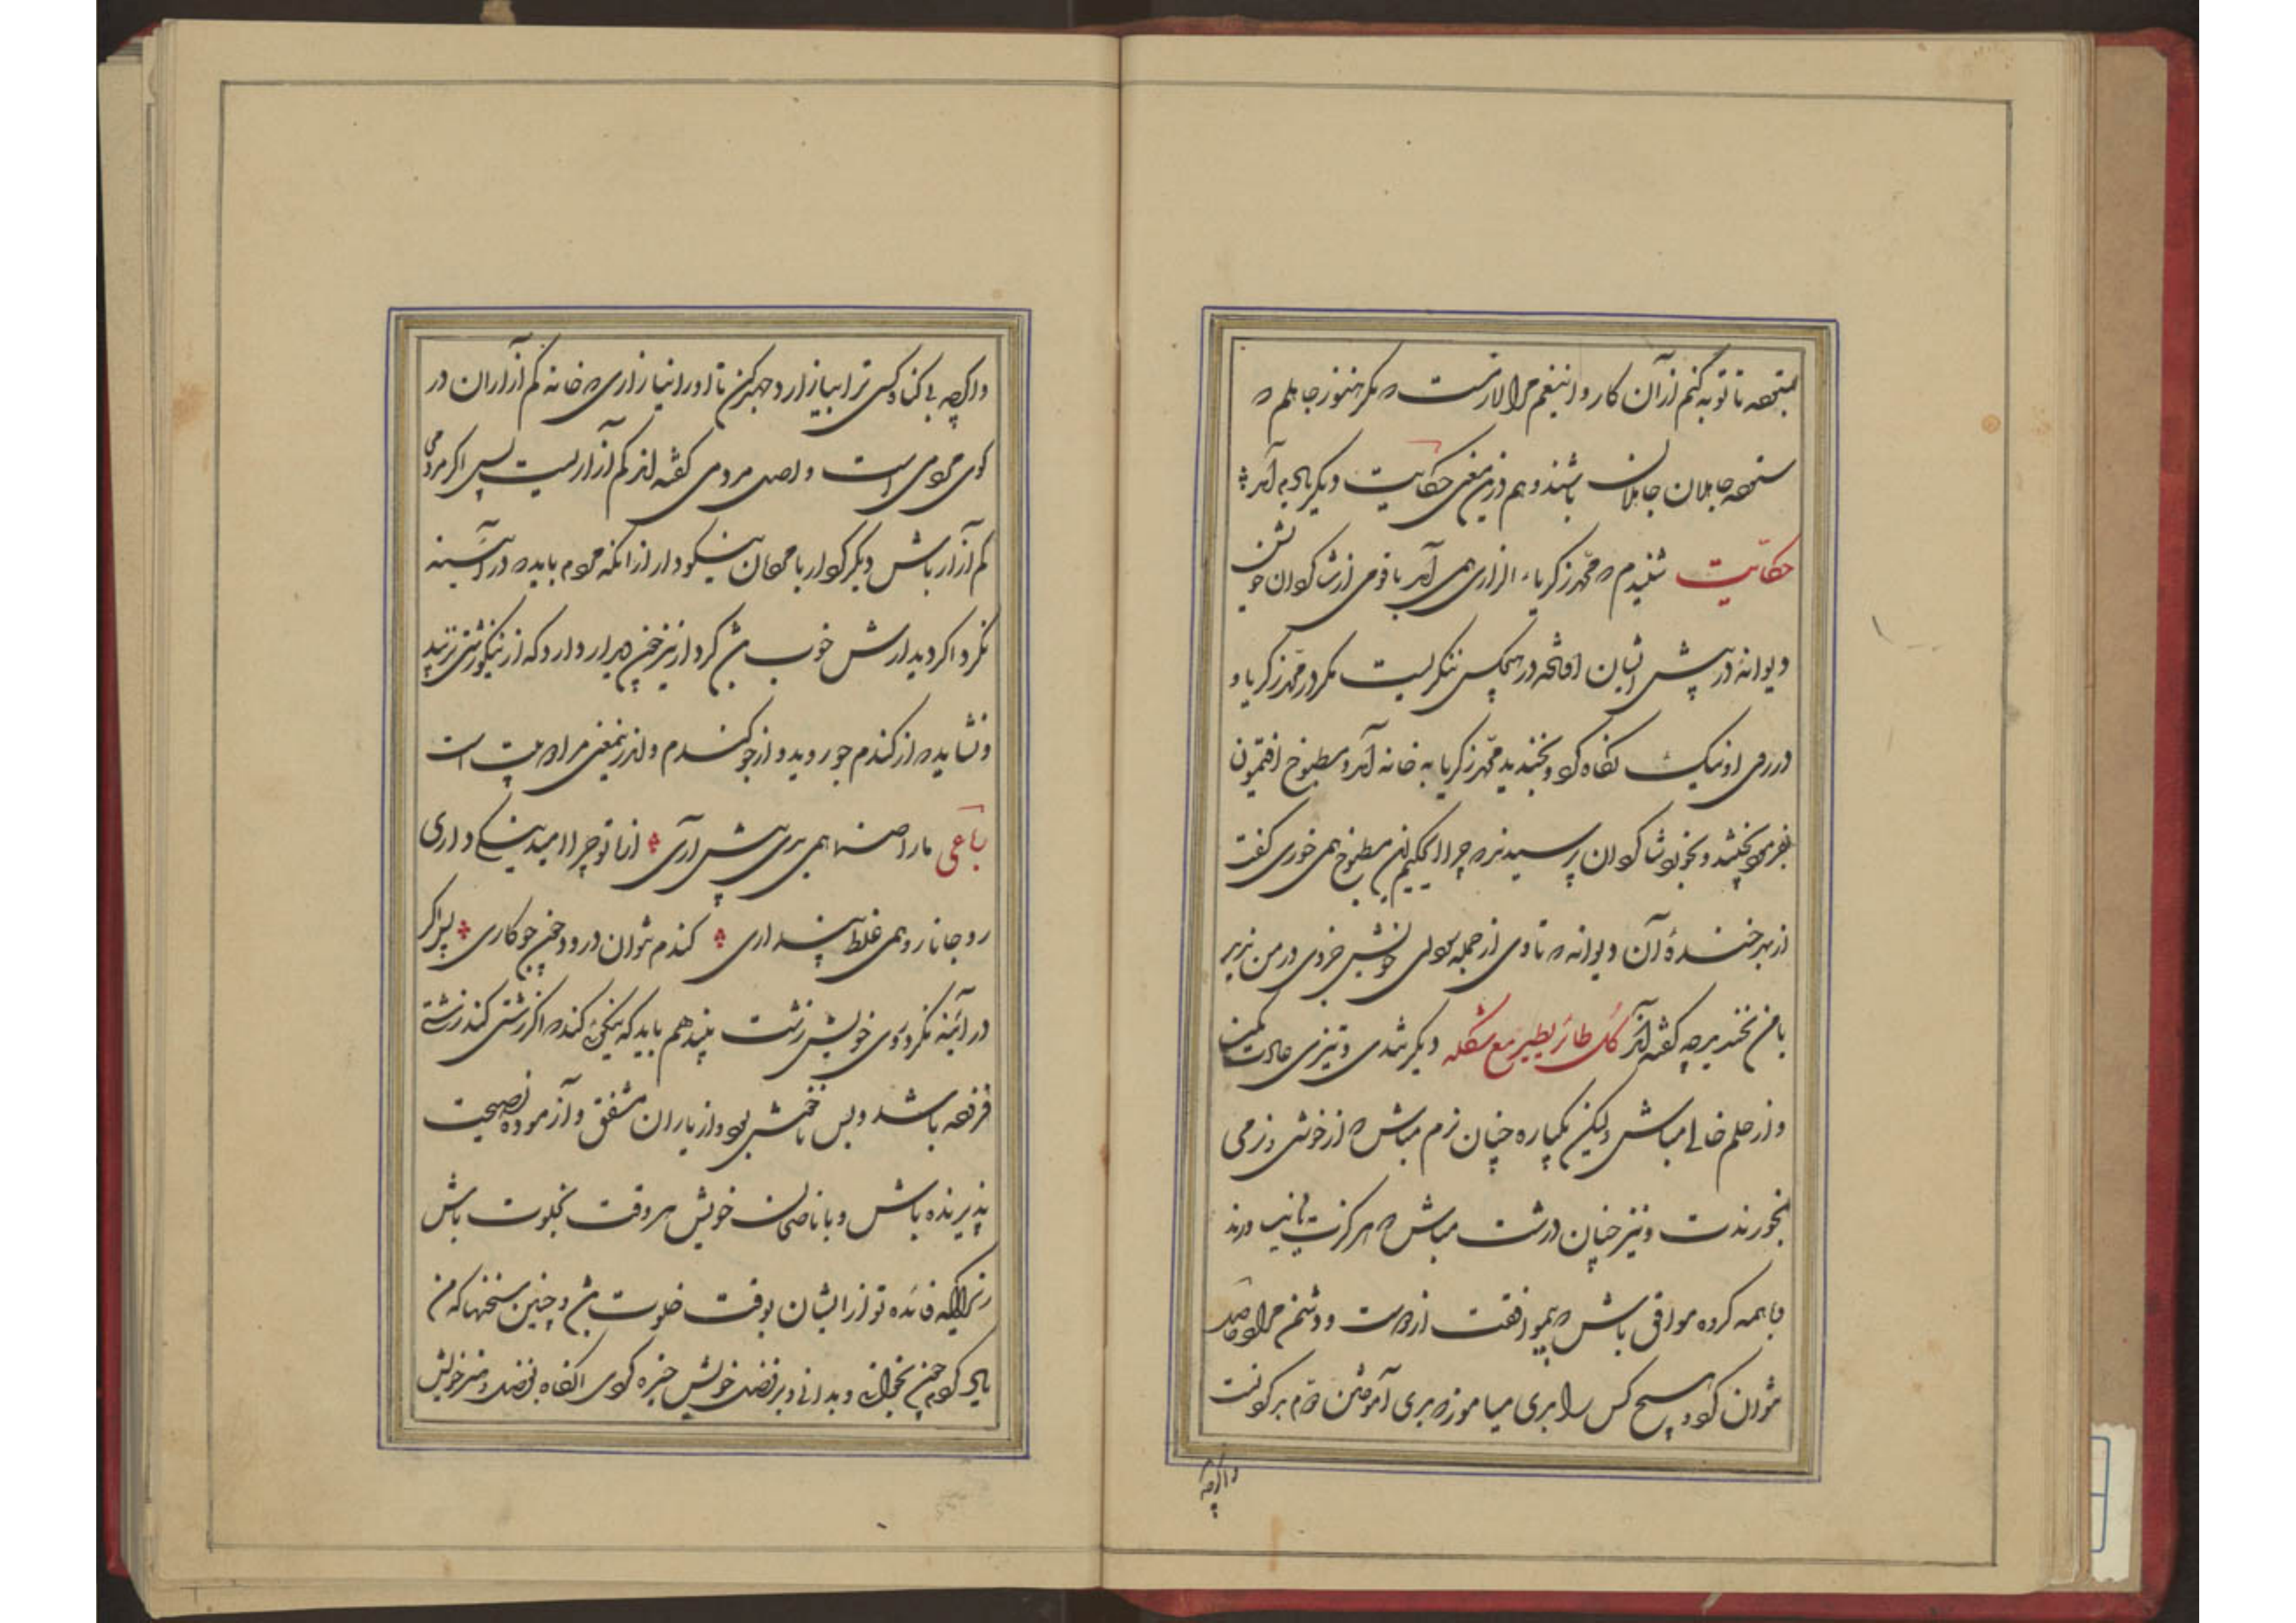 تا توبه کنم از آن کار و اینغم مرا لازمست که مگر هنوز جاهلم که
ستوده جاهلان جاهلان باشند و هم درین معنی حکایت دیگر یاد آمد
حکایت شنیدم که محمد زکریاء الرازی همی آمد با قومی از شاکردان خویشتن
دیوانهٔ در پیش ایشان افتاد در هیچکس ننگریست مگر در محمد زکریا و
در روی او نیک نگاه کرد و بخندید محمد زکریا به خانه آمد و مطبوخ افتیمون
بفرمود پختند و بخورد شاکردان پرسیدند که چرا ای حکیم این مطبوخ همی خوری گفت
از بهر خندهٔ آن دیوانه که تا وی از جمله سودای خویش جزوی در من ندید
با من نخندید چه گفته‌اند کل طائر یطیر مع شکله دیگر تندی و تیزی عادت مکن
و از حلم خالی مباش ولیکن یکباره چنان نرم مباش که از خوشی و نرمی
بخورندت و نیز چنان درشت مباش که هرگز بدست نپساوندت
با همه کروه موافق باش که بموافقت از دوست و دشمن مراد حاصل
توان کرد و هیچ کس را بدی میاموز که بدی آموختن دوم بدکردنست
واگرچه
واگرچه بی گناه کسی ترا بیازارد جهد کن تا او را نیازاری که خانه کم آزاران در
کوی مردمی است و اصل مردمی گفته‌اند کم آزاریست پس اگر مردمی
کم آزار باش دیگر کردار با مردمان نیکو دار از آنکه مردم باید که در آینه
نکرد اگر دیدارش خوب بود کردار نیز چون دیدار دارد که از نیکو زشتی نزیبد
و نشاید که از کندم جو روید و از جو کندم و اندرین معنی مرا دو بیت است
رباعی ما را صنما همی بدی پیش آری از ما تو چرا امید نیکی داری
رو جانا رو همی غلط پنداری کندم نتوان درود چون جو کاری پس اگر
در آینه نکرد و روی خویش زشت بیند هم باید که نیکوئی کند که اگر زشتی کند زشتی
فزوده باشد و بس ناخوش بود و از یاران مشفق و آزموده نصیحت
پذیرنده باش و با ناصحان خویش هر وقت بخلوت باش
زیرا که فائده تو از ایشان بوقت خلوت بود و چنین سخنها که من
یاد کردم چون بخوانی و بدانی و بر فضل خویش چیره گردی آنگاه بفضل و هنر خویش